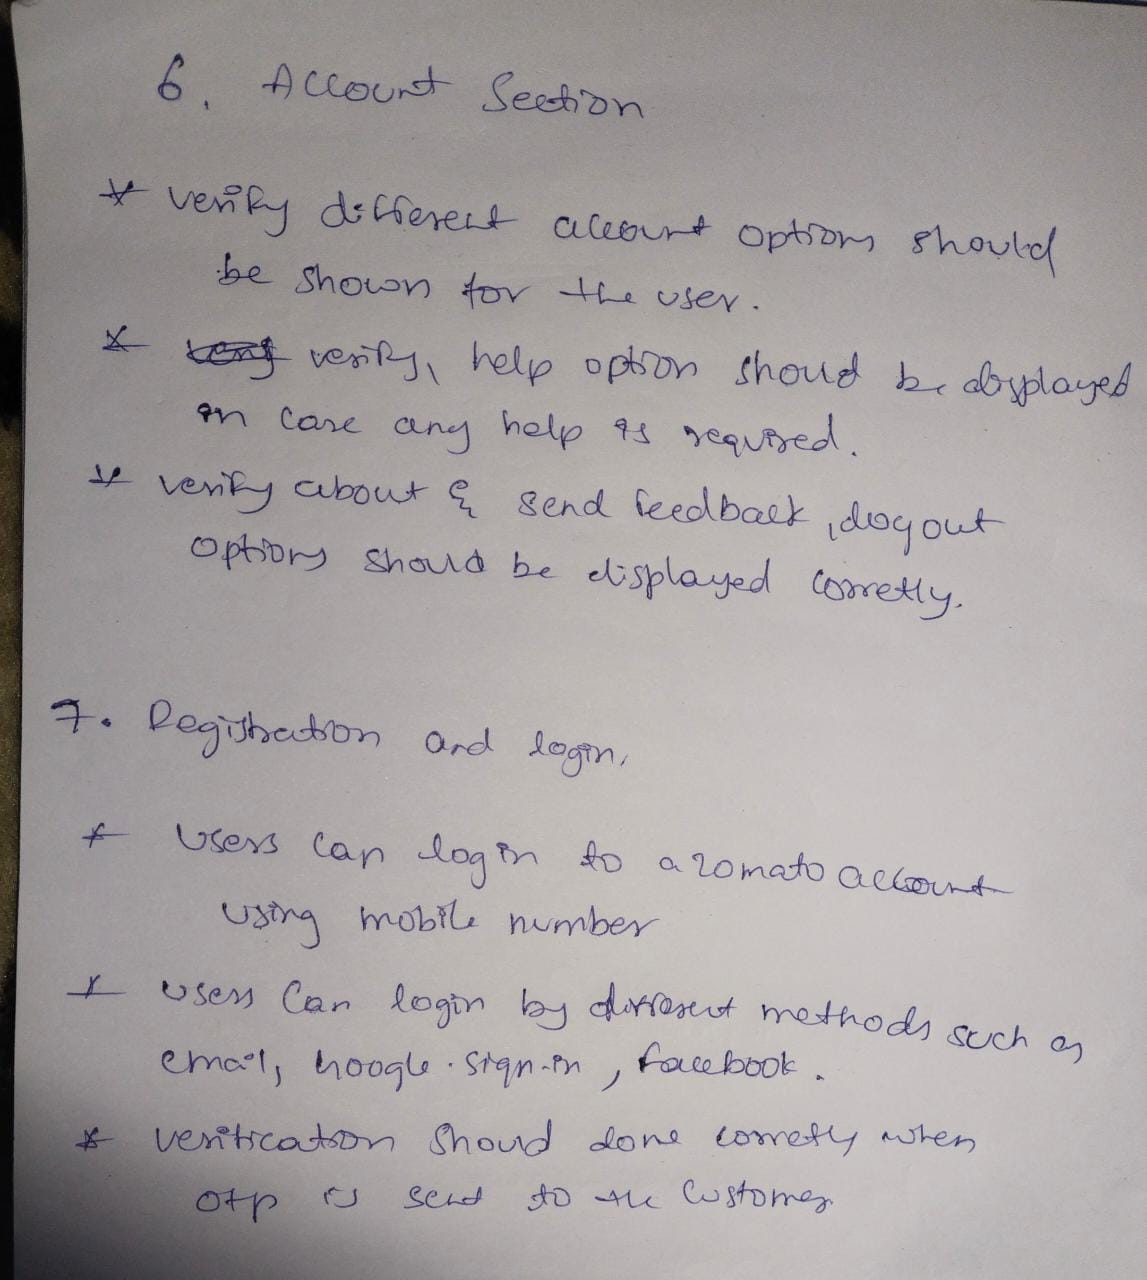 6. Account Section
* verify different account options should
be shown for the user.
* verify, help option should be displayed
in case any help is required.
* verify about & send feedback, logout
options should be displayed correctly.
7. Registration and login.
* Users can login to a zomato account
using mobile number
* users can login by different methods such as
email, Google sign-in, facebook.
* verification should done correctly when
otp is sent to the customer